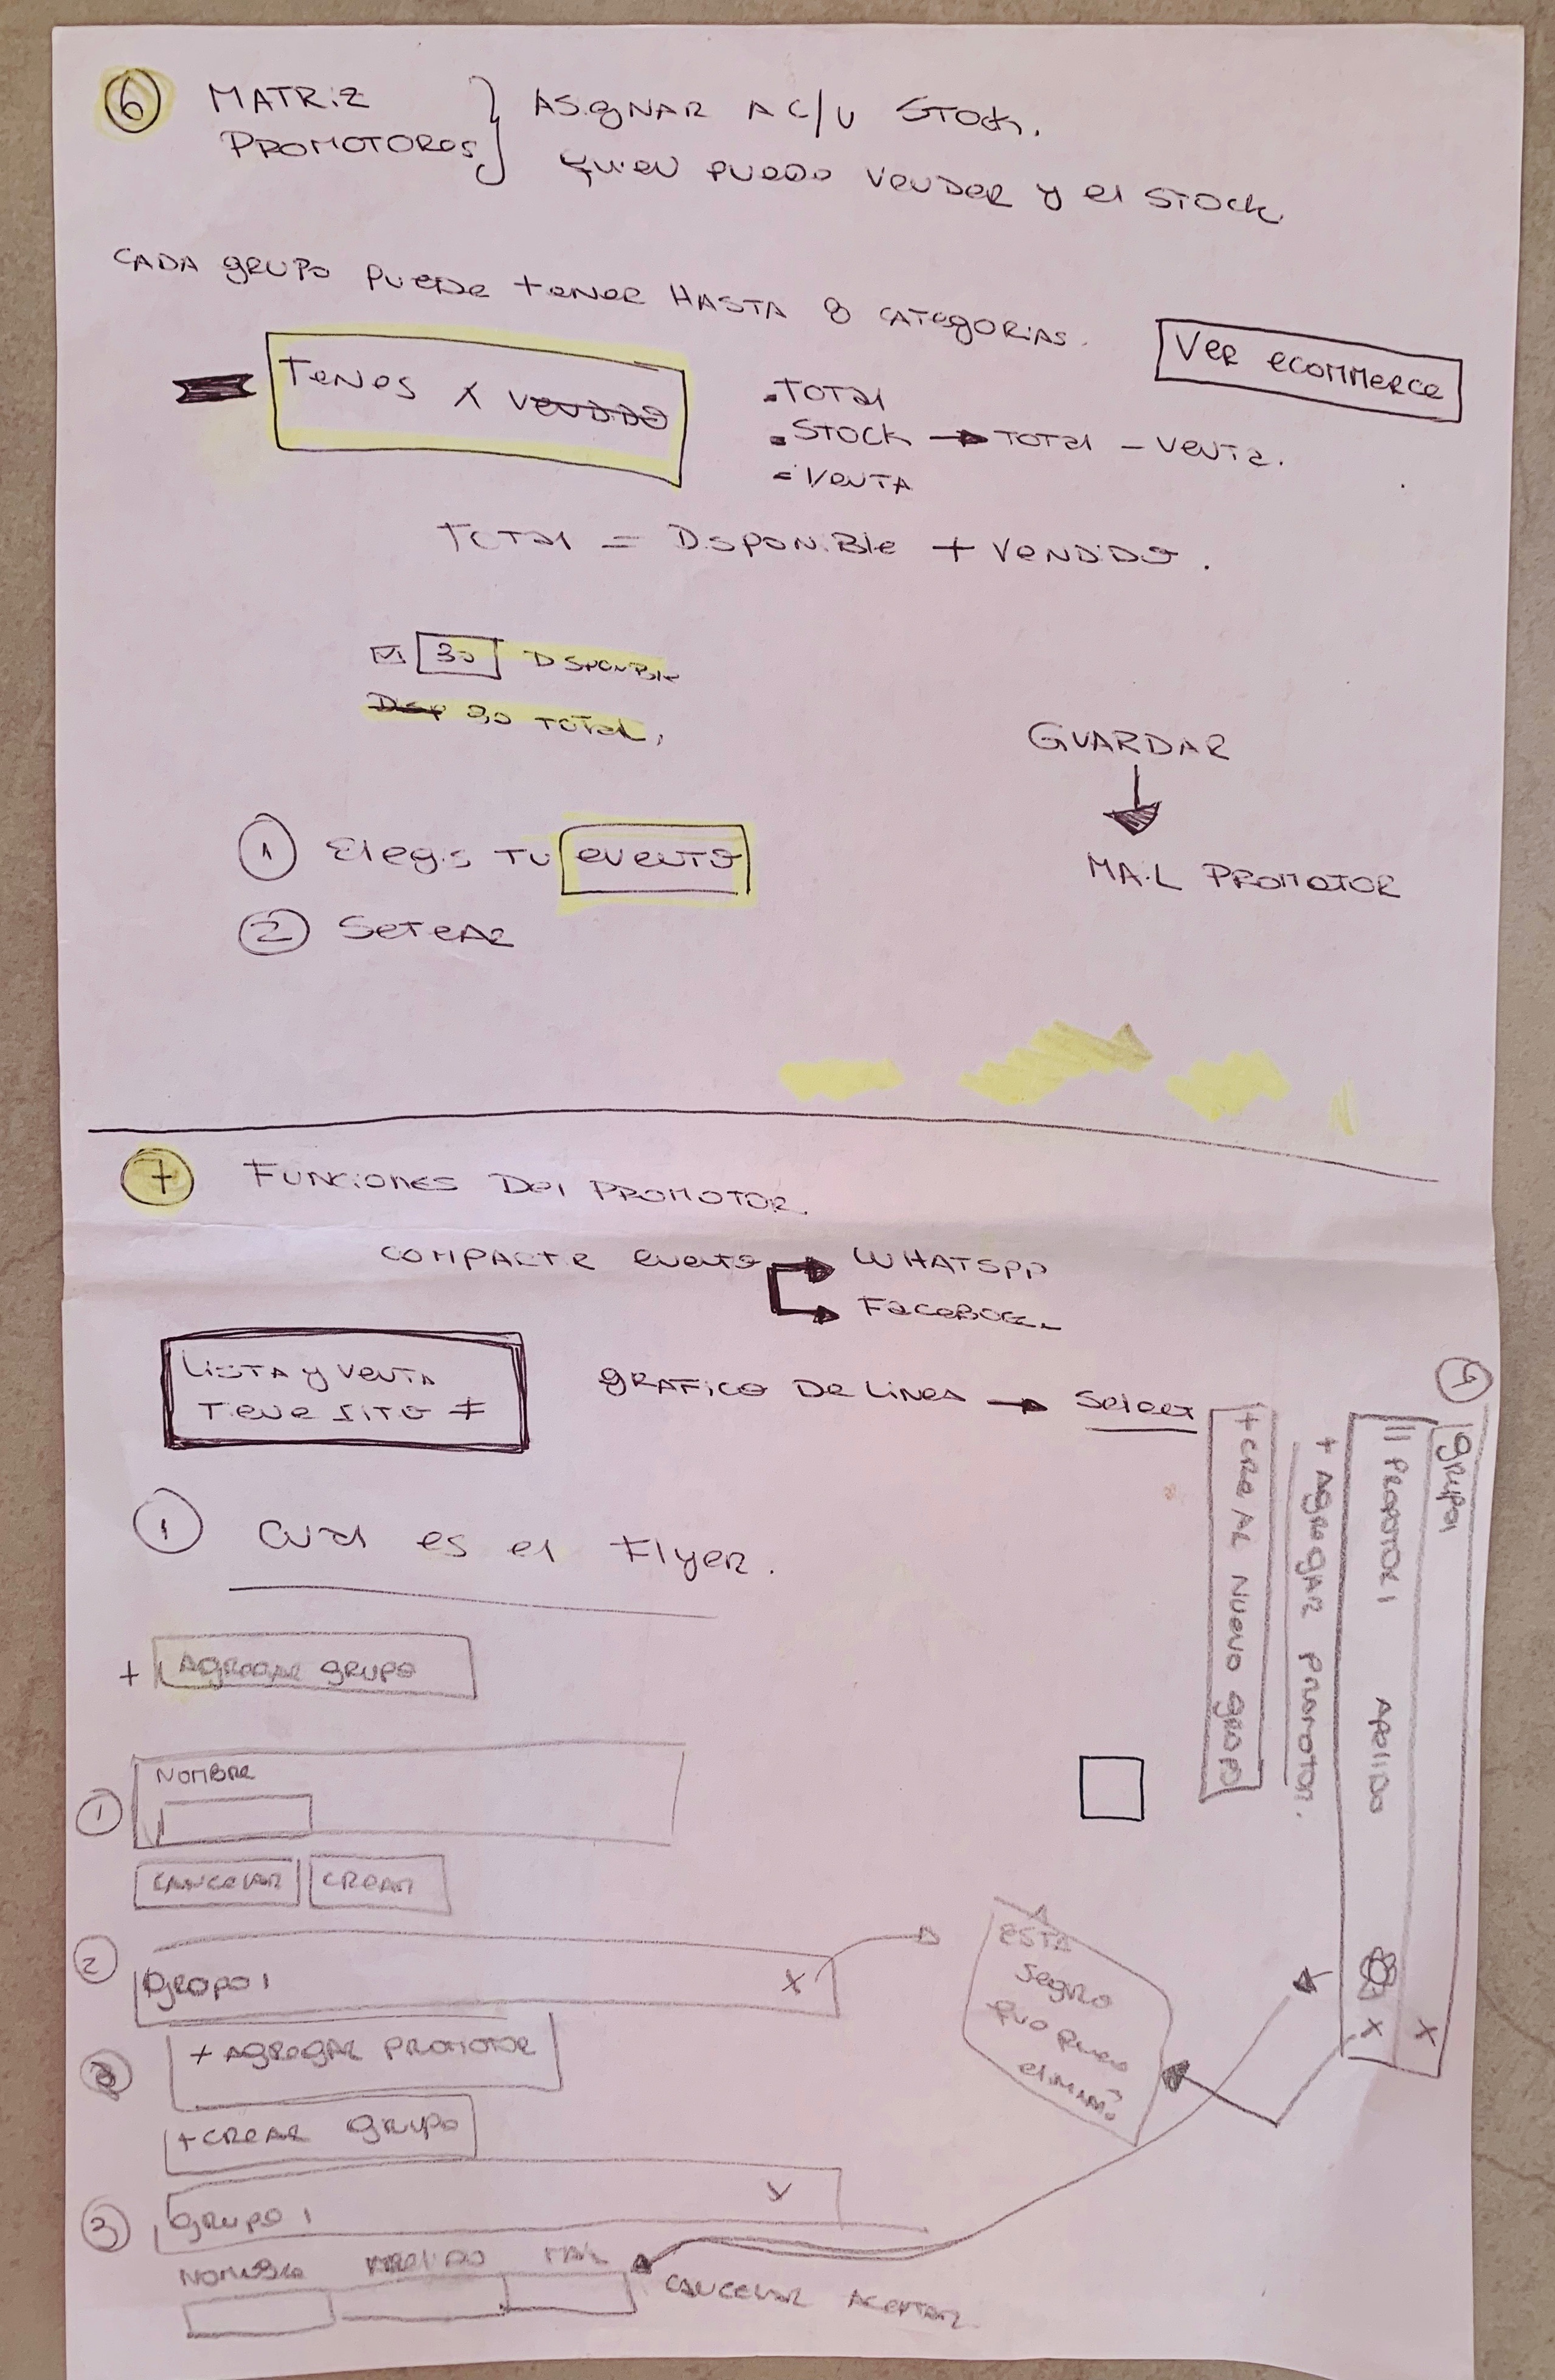 6 MATRIZ
PROMOTORES
ASIGNAR A C/U STOCK.
QUIEN PUEDE VENDER Y EL STOCK
CADA GRUPO PUEDE TENER HASTA 8 CATEGORIAS.
VER ECOMMERCE
TENES X VENDIDO
TOTAL
STOCK → TOTAL - VENTA.
VENTA
TOTAL = DISPONIBLE + VENDIDO.
30 DISPONIBLE
TOTAL
GUARDAR
MAIL PROMOTOR
1 ELEGIS TU EVENTO
2 SETEAR
7 FUNCIONES DEL PROMOTOR.
COMPARTIR EVENTO
WHATSPP
FACEBOOK
LISTA Y VENTA
TIENE SITO ≠
GRAFICO DE LINEA → SELECT
1 CUAL ES EL FLYER.
+ AGREGAR GRUPO
1
NOMBRE
CANCELAR CREAR
2 GRUPO 1 X
+ AGREGAR PROMOTOR
+ CREAR GRUPO
3 GRUPO 1
NOMBRE APELLIDO MAIL
CANCELAR ACEPTAR
ESTA
SEGURO
QUE QUIERE
ELIMINAR
4
GRUPO1 X
|| PROMOTOR 1 APELLIDO X
+ AGREGAR PROMOTOR.
+ CREAR NUEVO GRUPO